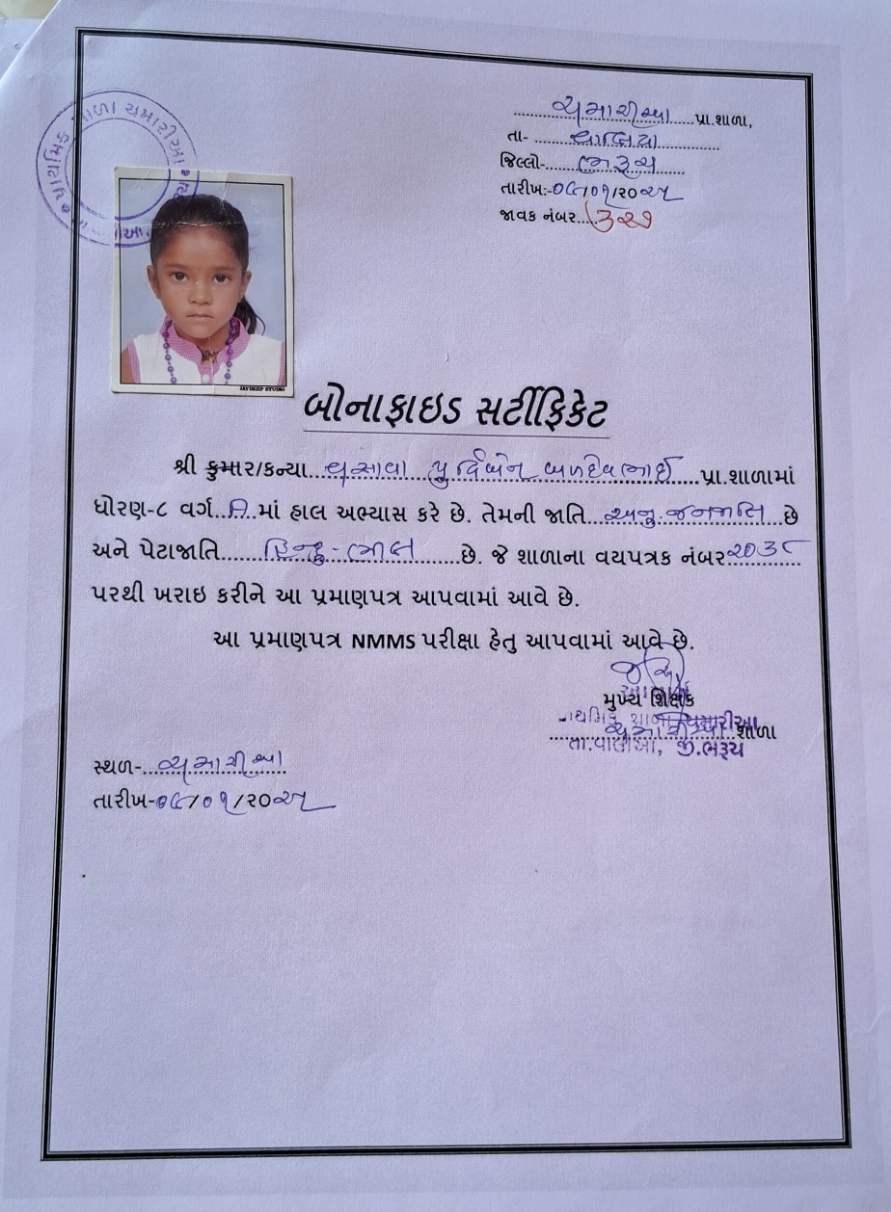 ચમારીઆ પ્રા.શાળા,
તા- વાલિયા
જિલ્લો- ભરૂચ
તારીખ:-૦૮/૦૧/૨૦૨૫
જાવક નંબર....૩૨૭
પ્રાથમિક શાળા ચમારીઆ
JAYDEEP STUDIO
બોનાફાઇડ સર્ટીફિકેટ
શ્રી કુમાર/કન્યા વસાવા પુર્વિબેન બળદેવભાઈ પ્રા.શાળામાં
ધોરણ-૮ વર્ગ..A..માં હાલ અભ્યાસ કરે છે. તેમની જાતિ અનુ.જનજાતિ છે
અને પેટાજાતિ હિન્દુ-ભીલ છે. જે શાળાના વયપત્રક નંબર ૨૦૩૮
પરથી ખરાઇ કરીને આ પ્રમાણપત્ર આપવામાં આવે છે.
આ પ્રમાણપત્ર NMMS પરીક્ષા હેતુ આપવામાં આવે છે.
આચાર્ય
મુખ્ય શિક્ષક
પ્રાથમિક શાળા ચમારીઆ
ચમારીઆ શાળા
તા.વાલીઆ, જી.ભરૂચ
સ્થળ- ચમારીઆ
તારીખ-૦૮/૦૧/૨૦૨૫